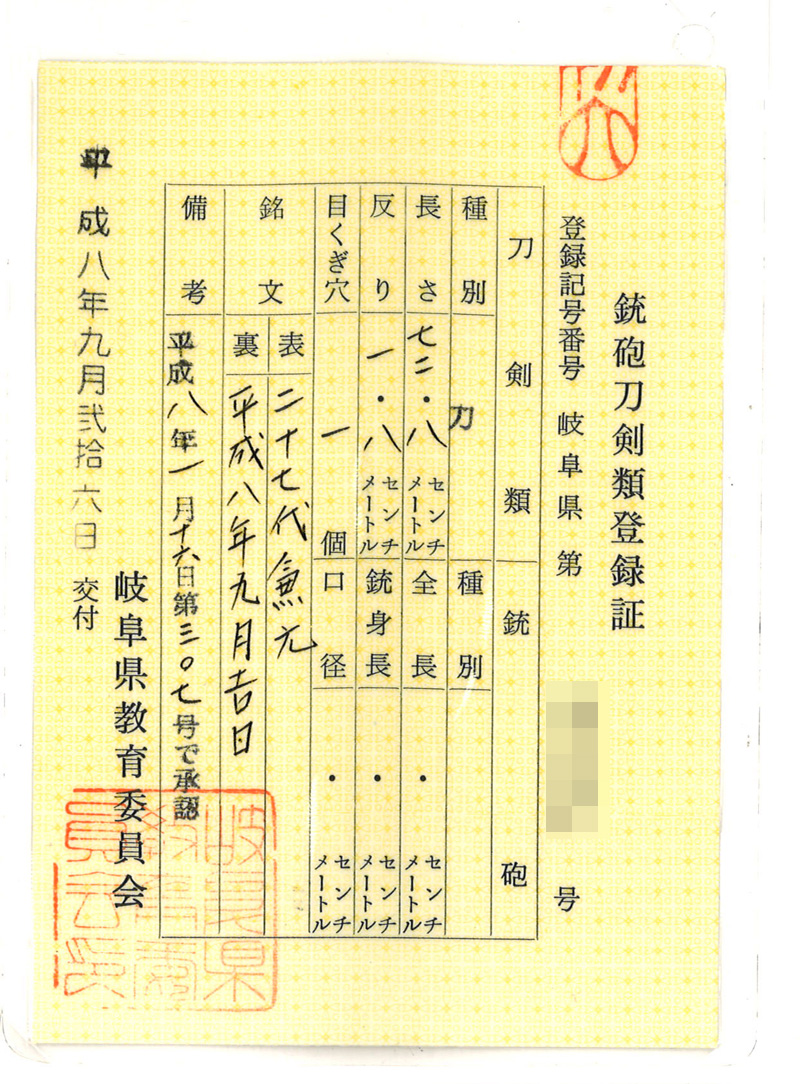 銃砲刀剣類登録証
登録記号番号 岐阜県 第 号
刀剣類 銃砲
種別 刀 種別
長さ 七二・八 センチメートル 全長 ・ センチメートル
反り 一・八 センチメートル 銃身長 ・ センチメートル
目くぎ穴 一 個 口径 ・ センチメートル
銘文 表 二十七代兼元
裏 平成八年九月吉日
備考 平成八年一月十六日第三〇七号で承認
平成八年九月弐拾六日 交付
岐阜県教育委員会
岐阜県
教育委
員会印